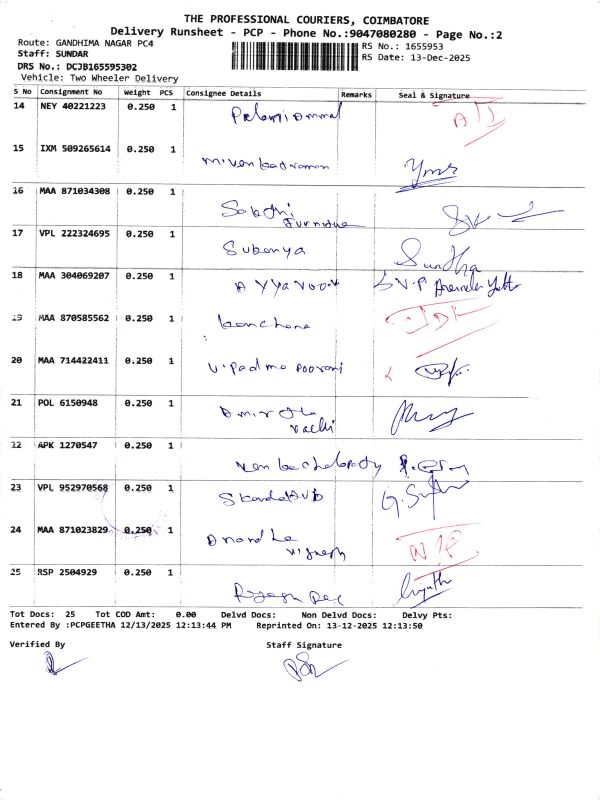 THE PROFESSIONAL COURIERS, COIMBATORE
Delivery Runsheet - PCP - Phone No.:9047080280 - Page No.:2
Route: GANDHIMA NAGAR PC4
RS No.: 1655953
Staff: SUNDAR
RS Date: 13-Dec-2025
DRS No.: DCJB165595302
Vehicle: Two Wheeler Delivery
S No Consignment No Weight PCS Consignee Details Remarks Seal & Signature
14 NEY 40221223 0.250 1
15 IXM 509265614 0.250 1
16 MAA 871034308 0.250 1 Sakthi
Furniture
17 VPL 222324695 0.250 1 Sukanya Sundha
18 MAA 304069207 0.250 1 AYYavoo
19 MAA 870585562 0.250 1 kanchana
20 MAA 714422411 0.250 1 V. Padma Poorani
21 POL 6150948 0.250 1
22 APK 1270547 0.250 1
23 VPL 952970568 0.250 1
24 MAA 871023829 0.250 1 Anandha
Vignesh
25 RSP 2504929 0.250 1
Tot Docs: 25 Tot COD Amt: 0.00 Delvd Docs: Non Delvd Docs: Delvy Pts:
Entered By :PCPGEETHA 12/13/2025 12:13:44 PM Reprinted On: 13-12-2025 12:13:50
Verified By Staff Signature